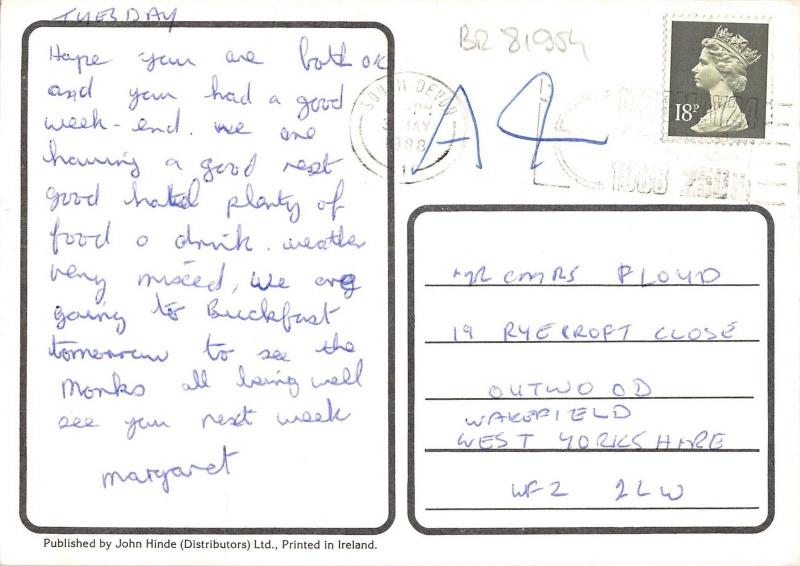 TUESDAY
Hope you are both ok
and you had a good
week-end. we are
having a good rest
good hotel plenty of
food & drink. weather
very mixed, We are
going to Buckfast
tomorrow to see the
Monks all being well
see you next week
margaret
Published by John Hinde (Distributors) Ltd., Printed in Ireland.
BR 81954
A4
SOUTH DEVON
MAY
1988
18P
MR & MRS FLOYD
19 RYECROFT CLOSE
OUTWOOD
WAKEFIELD
WEST YORKSHIRE
WF2 2LW